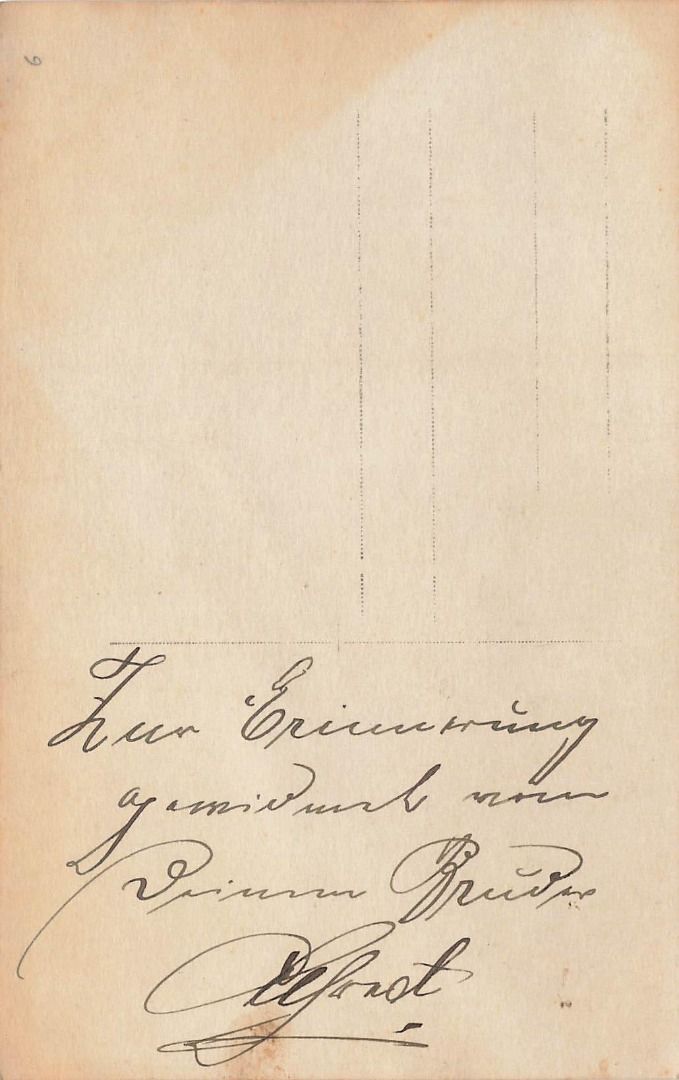 6
Zur Erinnerung
gewidmet von
Deinem Bruder
Alfred